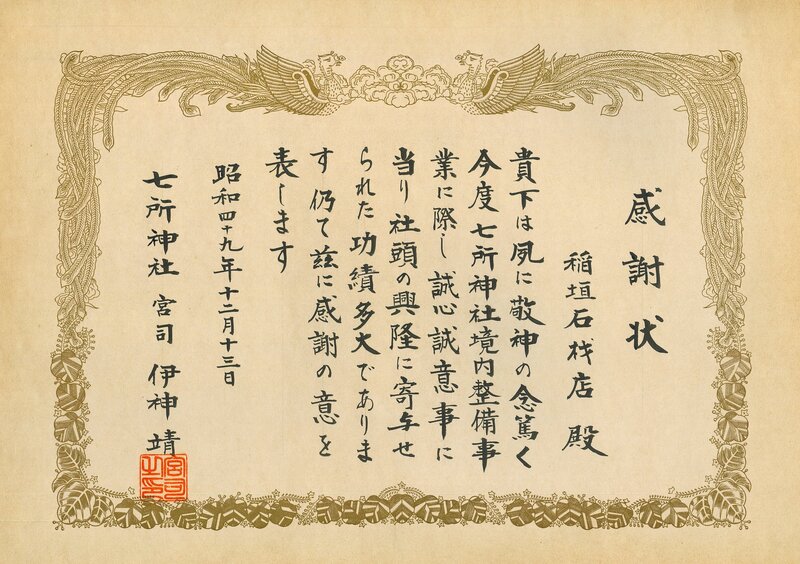 感謝状
稲垣石材店 殿
貴下は夙に敬神の念篤く
今度七所神社境内整備事
業に際し誠心誠意事に
当り社頭の興隆に寄与せ
られた功績多大でありま
す仍て茲に感謝の意を
表します
昭和四十九年十二月十三日
七所神社 宮司 伊神 靖
宮司之印